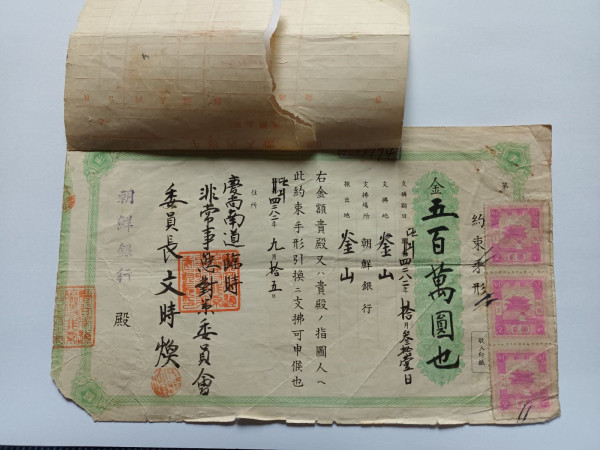 第
約束手形
収入印紙
金五百萬圓也
支拂期日 四二八二年拾月叄拾壹日
支拂地 釜山
支拂場所 朝鮮銀行
振出地 釜山
右金額貴殿又ハ貴殿ノ指圖人ヘ
此約束手形引換ニ支拂可申候也
四二八二年九月拾五日
住所
慶尚南道臨時
非常事態對策委員會
委員長文時煥
朝鮮銀行 殿